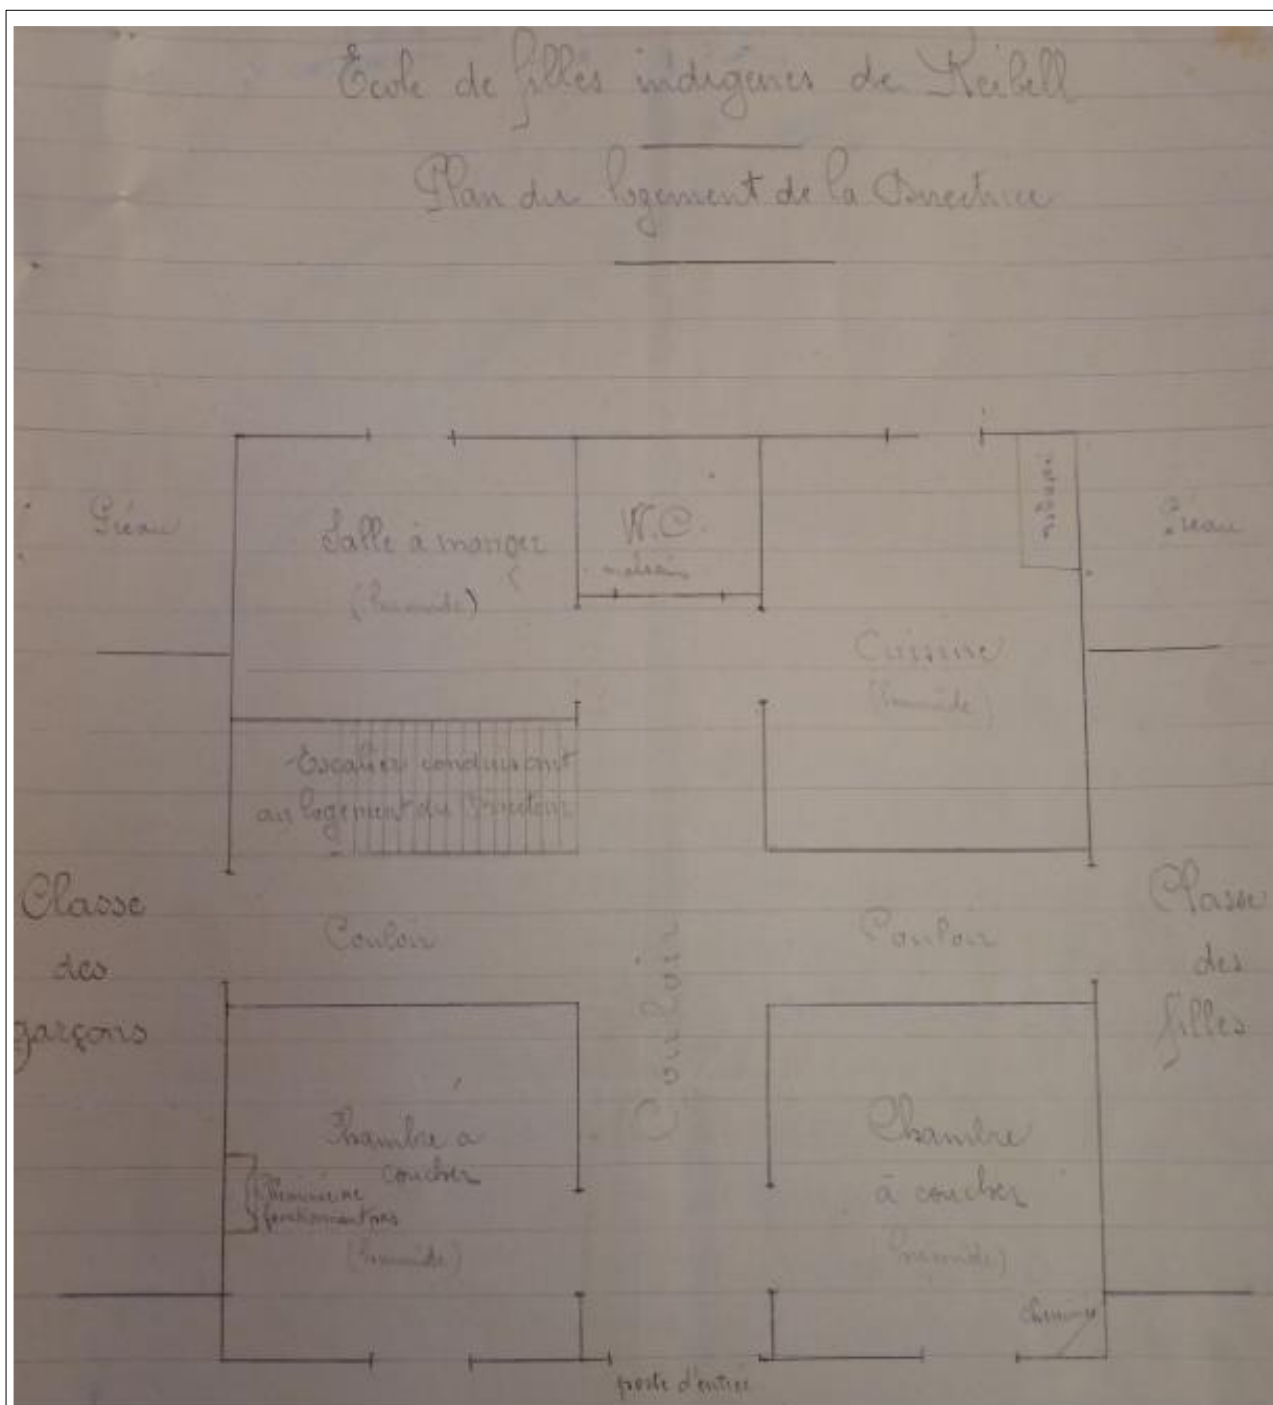 École de filles indigènes de Keibell
Plan du logement de la Directrice
Préau
Salle à manger
(humide)
W.C.
malsain
Préau
Cuisine
(humide)
Escalier conduisant
au logement du Directeur
Classe
des
garçons
Couloir
Couloir
Couloir
Classe
des
filles
Chambre à
coucher
Cheminée ne
fonctionnant pas
(humide)
Chambre
à coucher
(humide)
cheminée
porte d'entrée